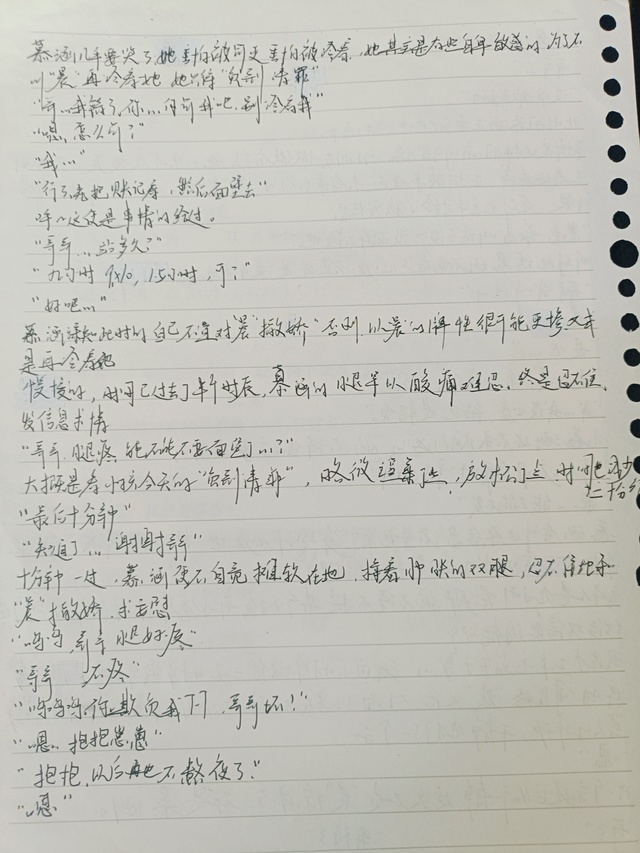 慕涵几乎要哭了,她害怕被罚更害怕被冷着,她其实是有些自卑敏感的,为了不
叫"晨"再冷着她,她只得"负荆请罪"
"哥…我错了,你…你罚我吧,别冷着我"
"嗯,怎么罚?"
"我…"
"行了,先把账记着,然后面壁去"
呼~这便是事情的经过。
"哥哥…站多久?"
"九小时 9×10,1.5小时,可?"
"好吧…"
慕涵深知此时的自己不宜对"晨"撒娇"否则,以"晨"的脾性很可能更惨又或
是再冷着她
慢慢的,时间已过去了半个时辰,慕涵的腿早以酸痛难忍,终是忍不住,
发信息求情
"哥哥,腿疼,能不能不要面壁了…?"
大概是看小孩今天的"负荆请罪",略微 ,放松了点,时间也减少
二十分钟
"最后十分钟"
"知道了…谢谢哥哥"
十分钟一过,慕涵便不自觉 软在地,揉着肿胀的双腿,忍不住地和
"晨"撒娇,求安慰
"呜呜,哥哥腿好疼"
"哥哥 不疼"
"呜呜呜,你欺负我TT,哥哥坏!"
"嗯,抱抱崽崽"
"抱抱,以后再也不熬夜了"
"嗯"